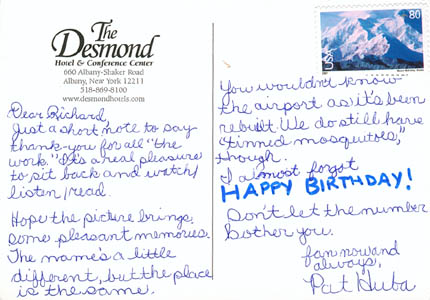 The
Desmond
Hotel & Conference Center
660 Albany-Shaker Road
Albany, New York 12211
518-869-8100
www.desmondhotels.com
Dear Richard,
Just a short note to say
thank-you for all "the
work." It's a real pleasure
to sit back and watch/
listen/read.
Hope the picture brings
some pleasant memories.
The name's a little
different, but the place
is the same.
80
USA
You wouldn't know
the airport as it's been
rebuilt. We do still have
"tinned mosquitoes,"
though.
I almost forgot
HAPPY BIRTHDAY!
Don't let the number
bother you.
fan now and
always,
Pat Huba